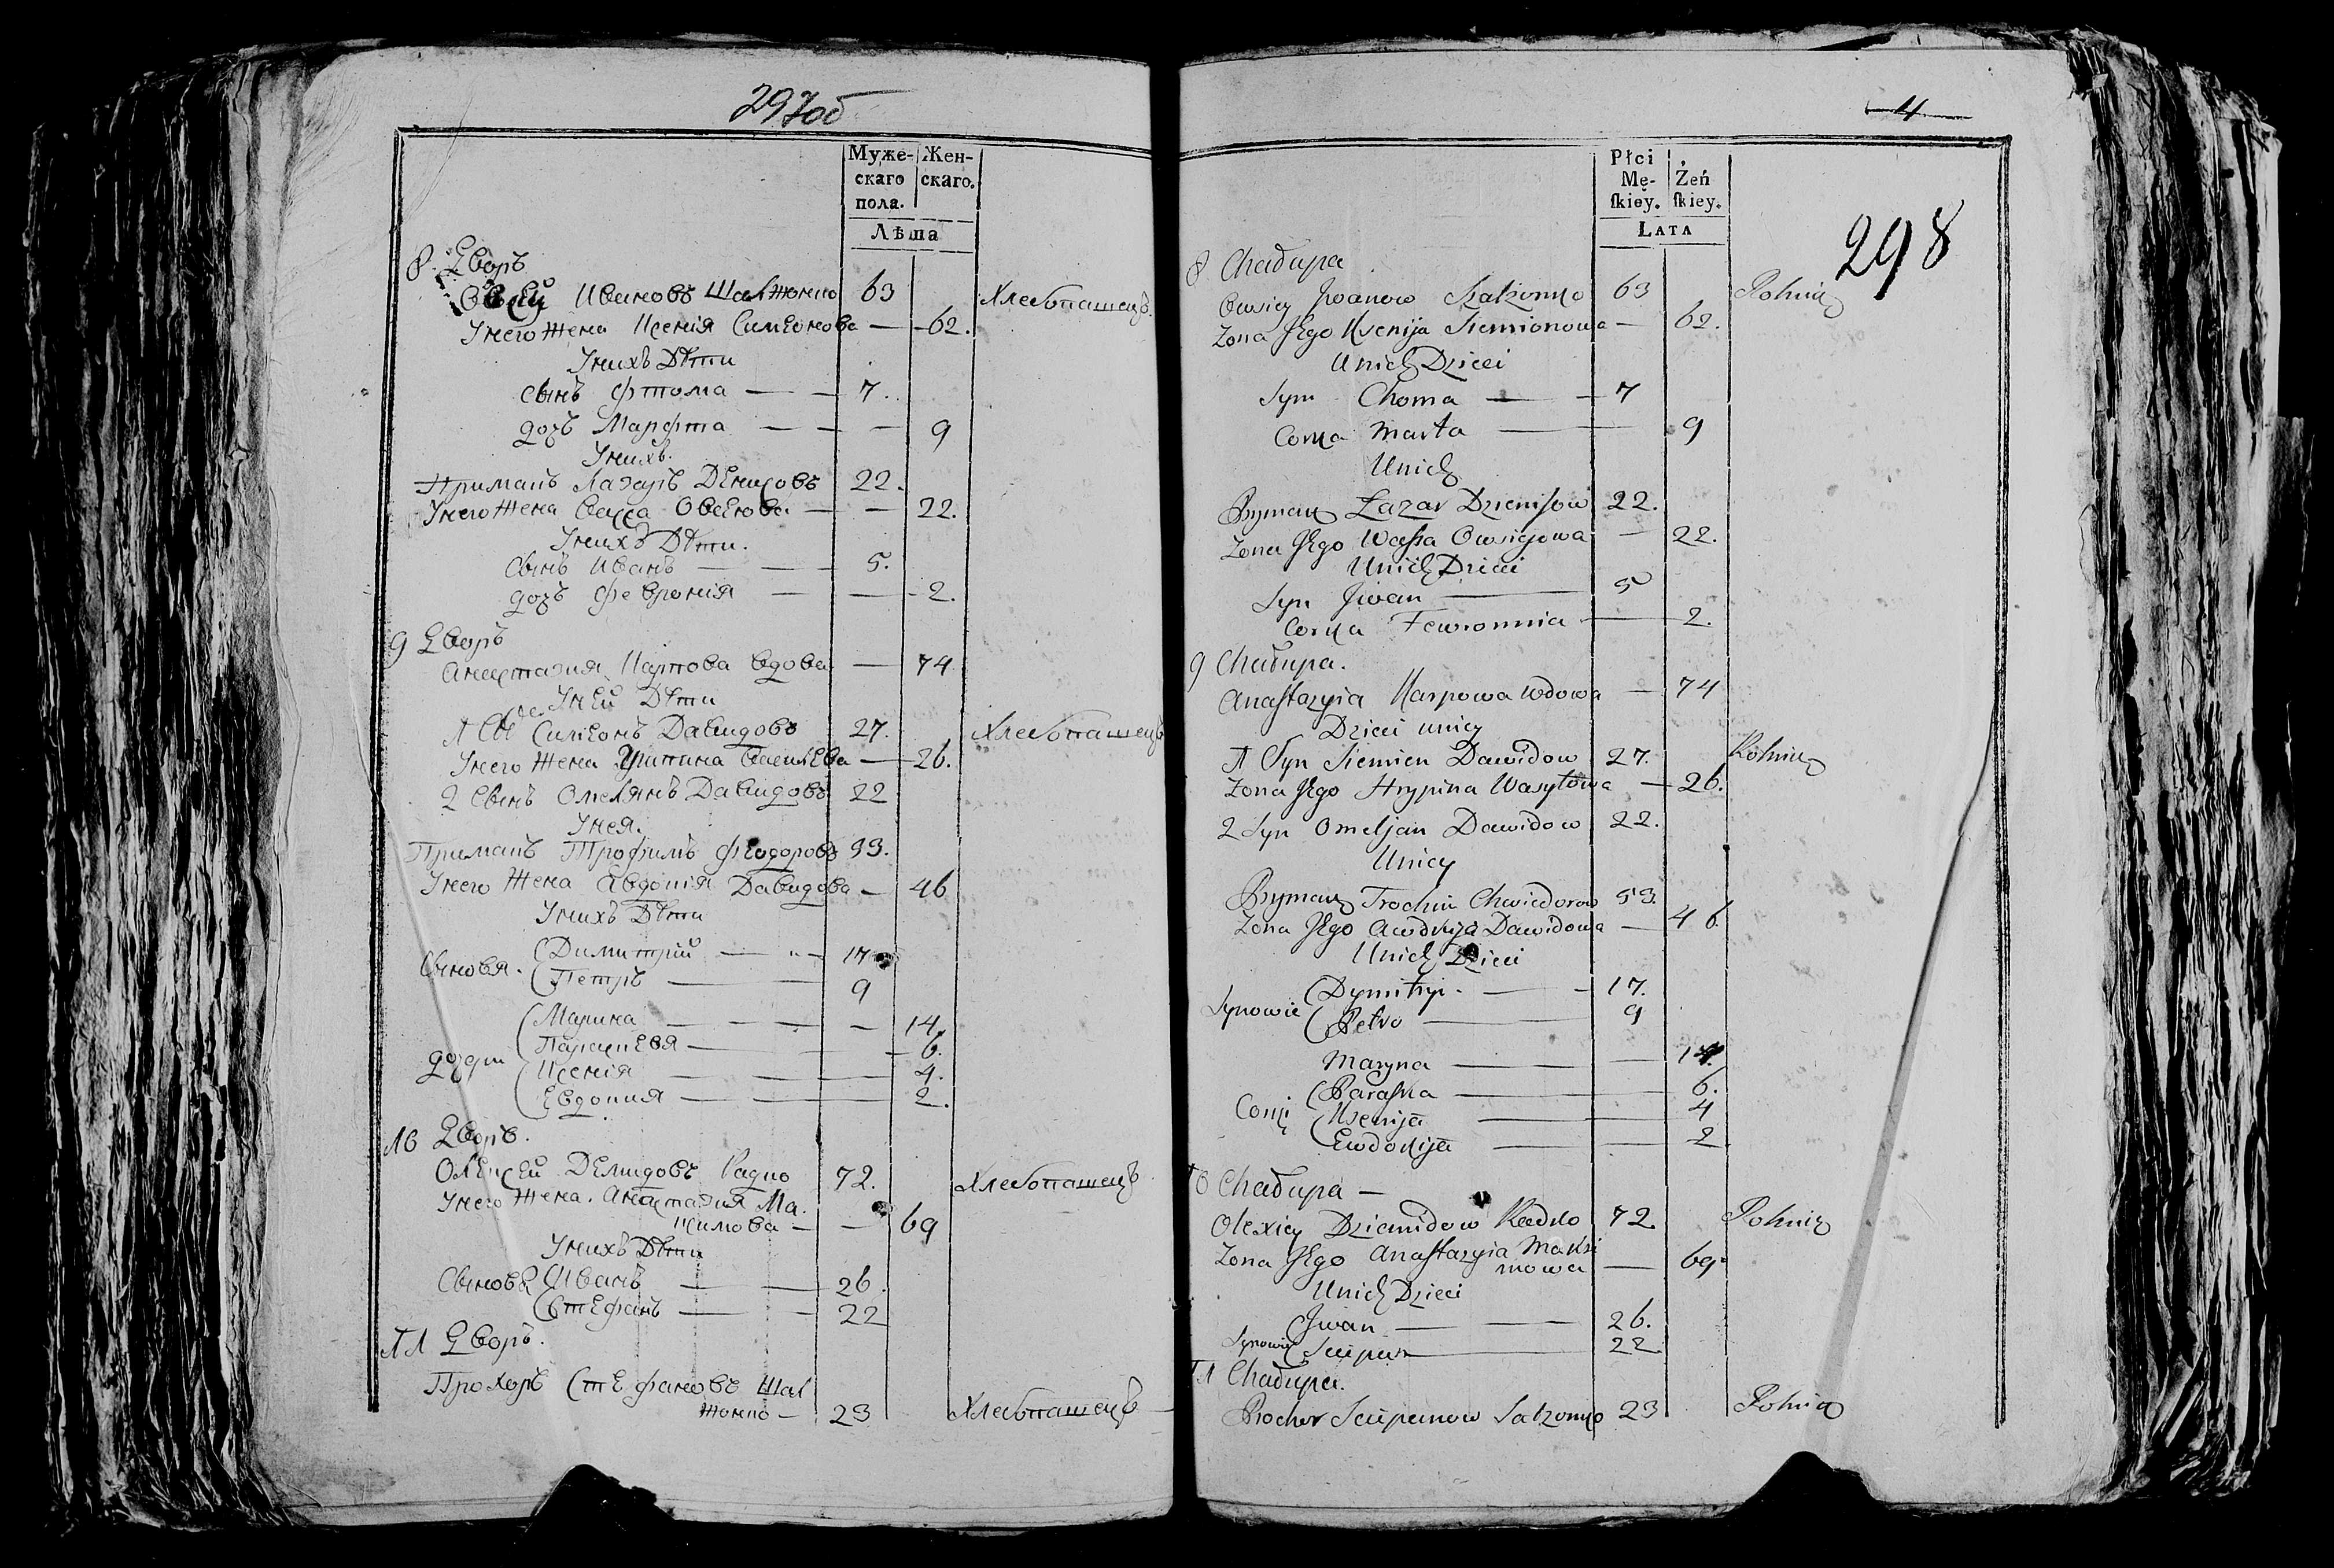 297об
Муже-
скаго
пола.
Жен-
скаго.
Лѣта
8. Дворъ
Овсей Ивановъ Шалжонко 63 Хлебопашецъ.
Унего жена Ксенія Симеонова — 62.
Унихъ Дѣти
Сынъ Фтома — — 7.
дочь Марфта — — — 9
Унихъ.
Приманъ Лазаръ Денисовъ 22.
Унего жена Васса Овсеюва — — 22.
Унихъ Дѣти.
Сынъ Иванъ — — 5.
дочь Февронія — — 2.
9 Дворъ
Анастазия Карпова вдова — 74
Уней Дѣти
1 Сынъ Симеонъ Давидовъ 27. Хлебопашецъ
Унего жена Василева — 26.
2 Сынъ Омелянъ Давидовъ 22
Унея.
Приманъ Трофимъ Феодоровъ 53.
Унего жена Авдокія Давидова — 46
Унихъ Дѣти
Сыновя. (Димитрій — — 17
(Петръ — 9
(Марина — — — — 14.
Параскевя — — 6.
дочери (Ксенія — — — 4.
(Евдокия — — 2.
10 Дворъ.
Олексей Демидовъ Радко 72. Хлебопашецъ
Унего жена. Анастазия Ма-
ксимова — — 69
Унихъ Дѣти
Сыновя (Иванъ — — 26.
(Стефанъ — — 22
11 Дворъ.
Прохоръ Стефановъ Шал
жонко — 23 Хлебопашецъ —
4
298
Płci
Mę-
skiey.
Żeń
skiey.
Lata
8 Chałupa
Owsiey Jwanow Szałżonko 63 Rolnik
Zona Jego Ksenija Siemionowa — 62.
Unich Dzieci
Syn Choma — — 7
Corka Marta — — 9
Unich
Prymak Łazar Dzienisow 22.
Zona Jego Wassa Owsiejowa — 22.
Unich Dzieci
Syn Jwan — 5
Corka Fewronnia — 2.
9 Chałupa.
Anastazyia Karpowa wdowa — 74
Dzieci unicy
1 Syn Siemien Dawidow 27. Rolnik
Zona Jego Hrypina Wasylowa — 26.
2 Syn Omeljan Dawidow 22.
Unicy
Prymak Trochim Chwiedorow 53.
Zona Jego Awdokija Dawidowa — 46
Unich Dzieci
Synowie (Dymitryi — — 17.
(Petro — 9
Maryna — — 14.
(Paraska — 6.
Corki (Ksenija — — 4
(Ewdokija — — 2.
10 Chałupa —
Olexiey Dziemidow Radko 72. Rolnik
Zona Jego Anastazyia Maksi
mowa — 69
Unich Dzieci
(Jwan — — 26.
Synowie (Sciepan — 22
11 Chałupa.
Prochor Sciepanow Sałzonko 23 Rolnik